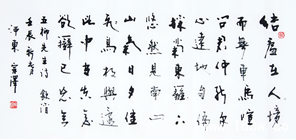 结廬在人境
而無車馬喧
问君何能尔
心遠地自偏
採菊東籬下
悠然見南
山氣日夕佳
飛鳥相與還
此中有真意
欲辯已忘言
五柳先生诗飲酒
壬辰新春